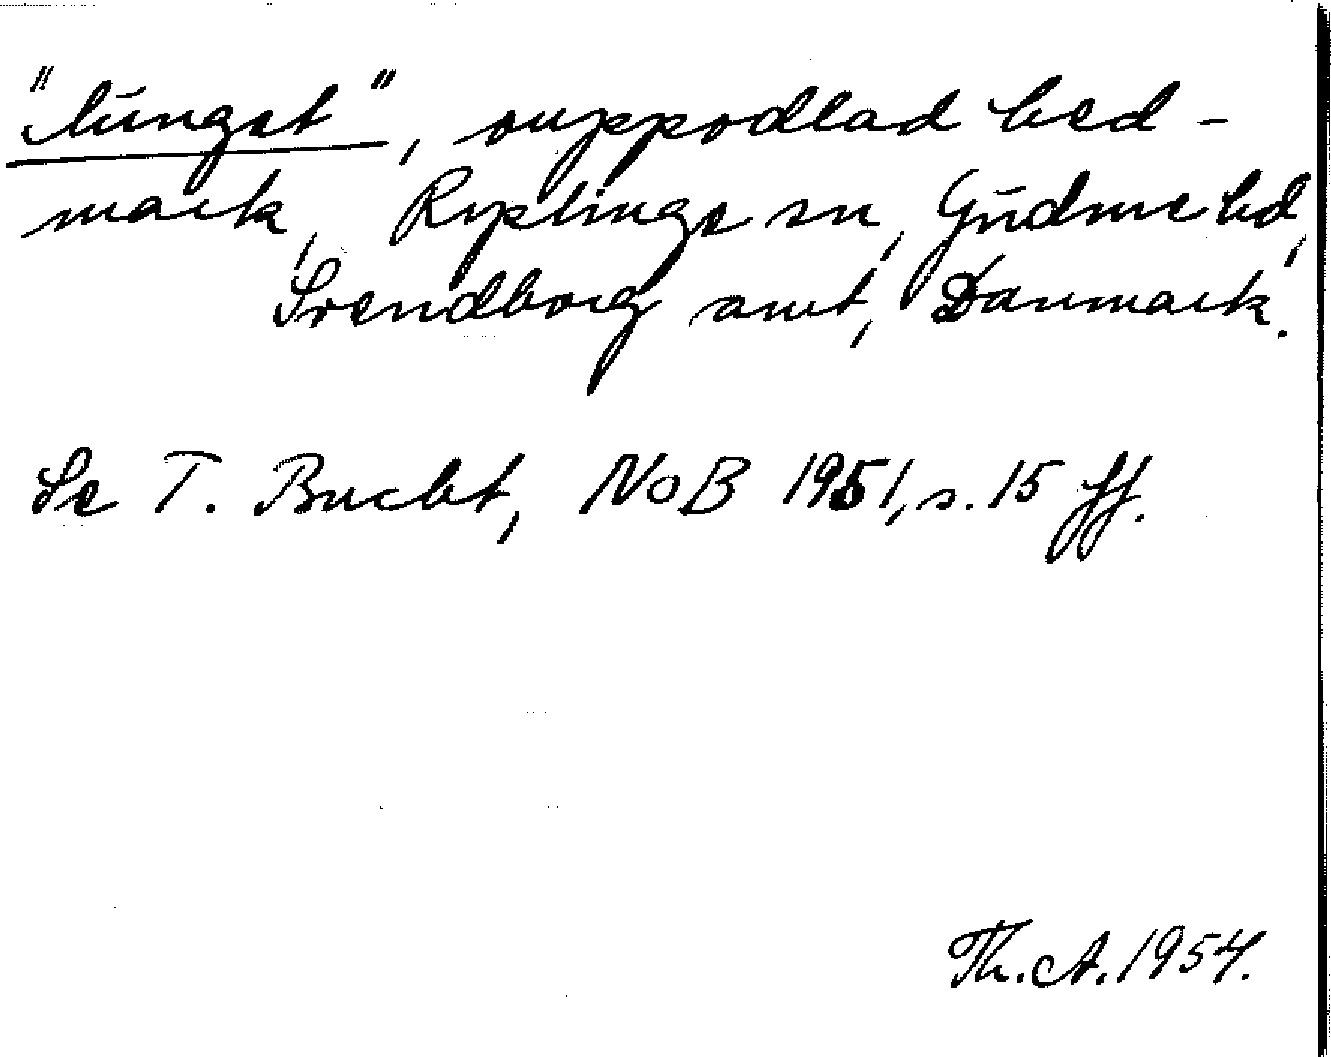 "lungst", ouppodlad hed-
mark, Ryslinge sn, Gudme hd,
Svendborg amt, Danmark.
Se T. Bucht, NoB 1951, s. 15 ff.
Th. A. 1954.